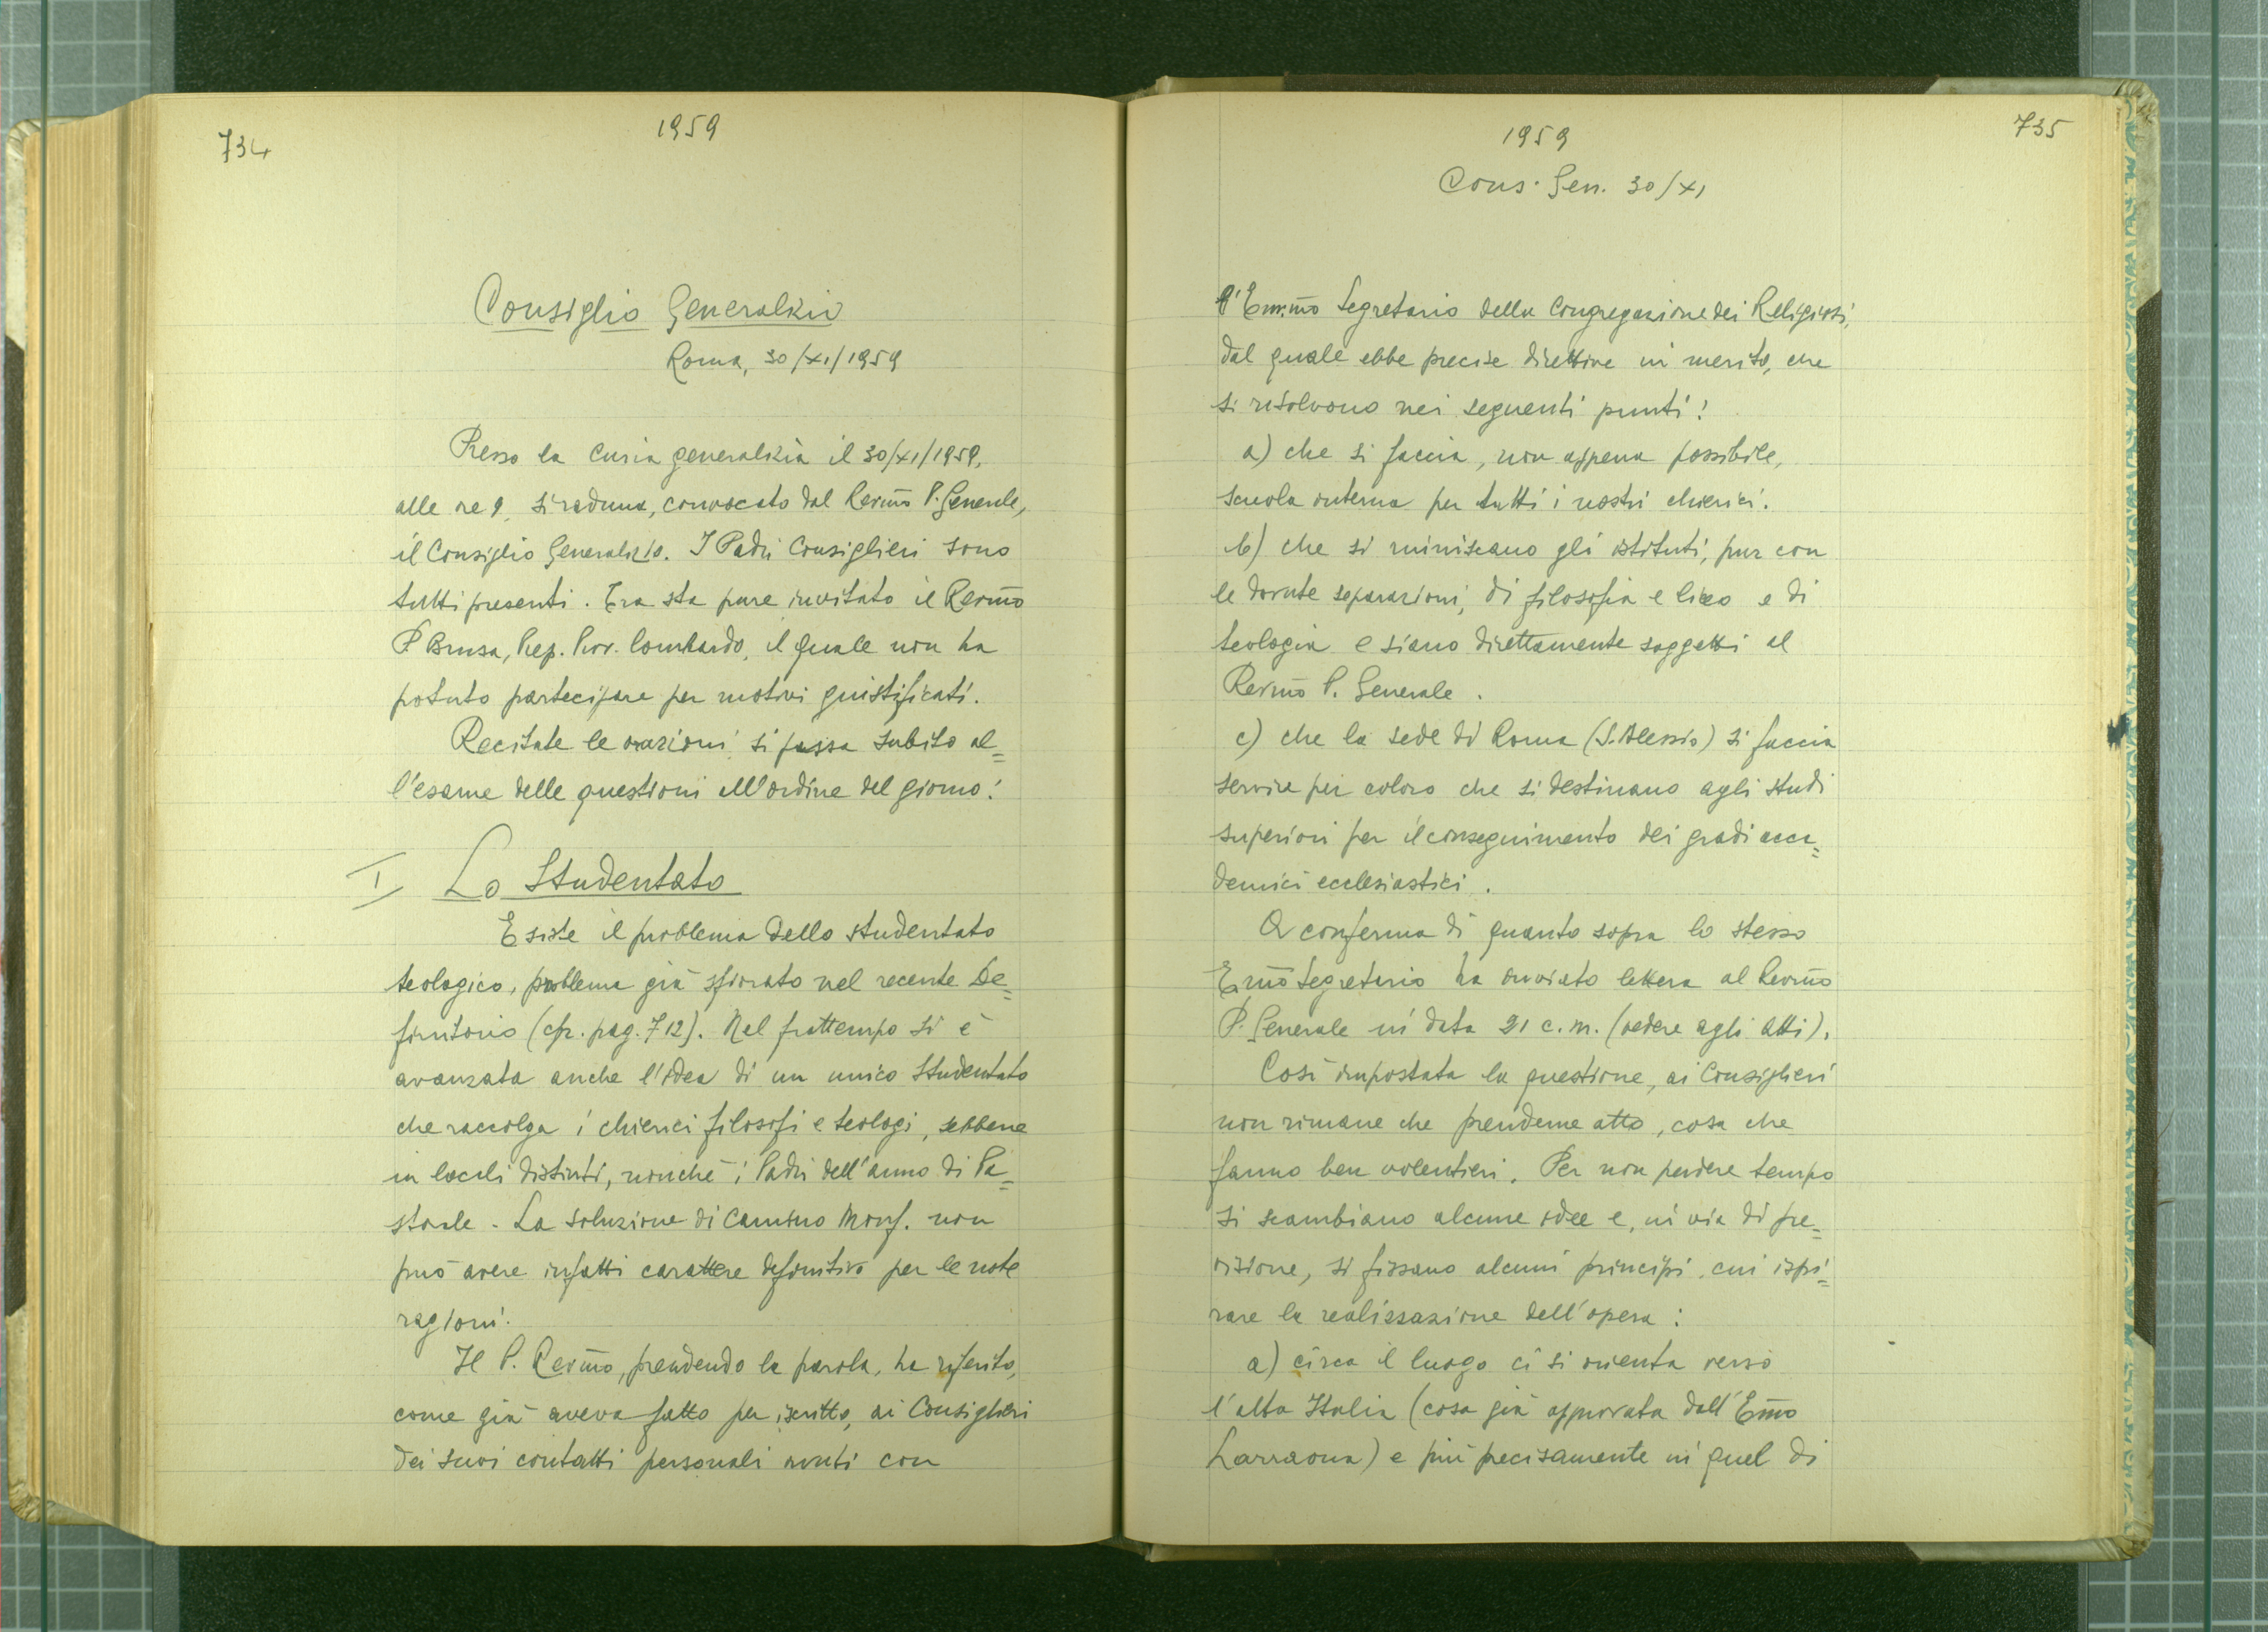 734
1959
Consiglio Generalizio
Roma, 30/XI/1959
Presso la Curia generalizia il 30/XI/1959,
alle ore 9, si raduna, convocato dal Rev.mo P. Generale,
il Consiglio Generalizio. I Padri Consiglieri sono
tutti presenti. Era sta pure invitato il Rev.mo
P. Brusa, Prep. Prov. Lombardo, il quale non ha
potuto partecipare per motivi giustificati.
Recitate le orazioni, si passa subito al=
l'esame delle questioni all'ordine del giorno:
I Lo Studentato
Esiste il problema dello studentato
teologico, problema già sfiorato nel recente De=
finitorio (cfr. pag. 712). Nel frattempo si è
avanzata anche l'idea di un unico Studentato
che raccolga i chierici filosofi e teologi, sebbene
in locali distinti, nonché i Padri dell'anno di Pa=
storale. La soluzione di Camino Monf. non
può avere infatti carattere definitivo per le note
ragioni.
Il P. Rev.mo, prendendo la parola, ha riferito,
come già aveva fatto per iscritto, ai Consiglieri
dei suoi contatti personali avuti con
1959
735
Cons. Gen. 30/XI
l'Em.mo Segretario della Congregazione dei Religiosi,
dal quale ebbe precise direttive in merito, che
si risolvono nei seguenti punti:
a) che si faccia, non appena possibile,
scuola interna per tutti i nostri chierici.
b) che si riuniscano gli istituti, pur con
le dovute separazioni, di filosofia e liceo e di
teologia e siano direttamente soggetti al
Rev.mo P. Generale.
c) che la sede di Roma (S. Alessio) si faccia
servire per coloro che si destinano agli studi
superiori per il conseguimento dei gradi acca=
demici ecclesiastici.
A conferma di quanto sopra lo stesso
E.mo Segretario ha inviato lettera al Rev.mo
P. Generale in data 21 c.m. (vedere agli Atti).
Così impostata la questione, ai Consiglieri
non rimane che prenderne atto, cosa che
fanno ben volentieri. Per non perdere tempo
si scambiano alcune idee e, in via di pre=
visione, si fissano alcuni principi, cui ispi=
rare la realizzazione dell'opera:
a) circa il luogo ci si orienta verso
l'alta Italia (cosa già approvata dall'E.mo
Larraona) e più precisamente in quel di